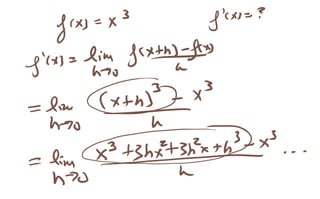 f(x) = x³ f'(x) = ?
f'(x) = lim h→0 (f(x+h) - f(x))/h
= lim h→0 ((x+h)³ - x³)/h
= lim h→0 (x³ + 3hx² + 3h²x + h³ - x³)/h ...